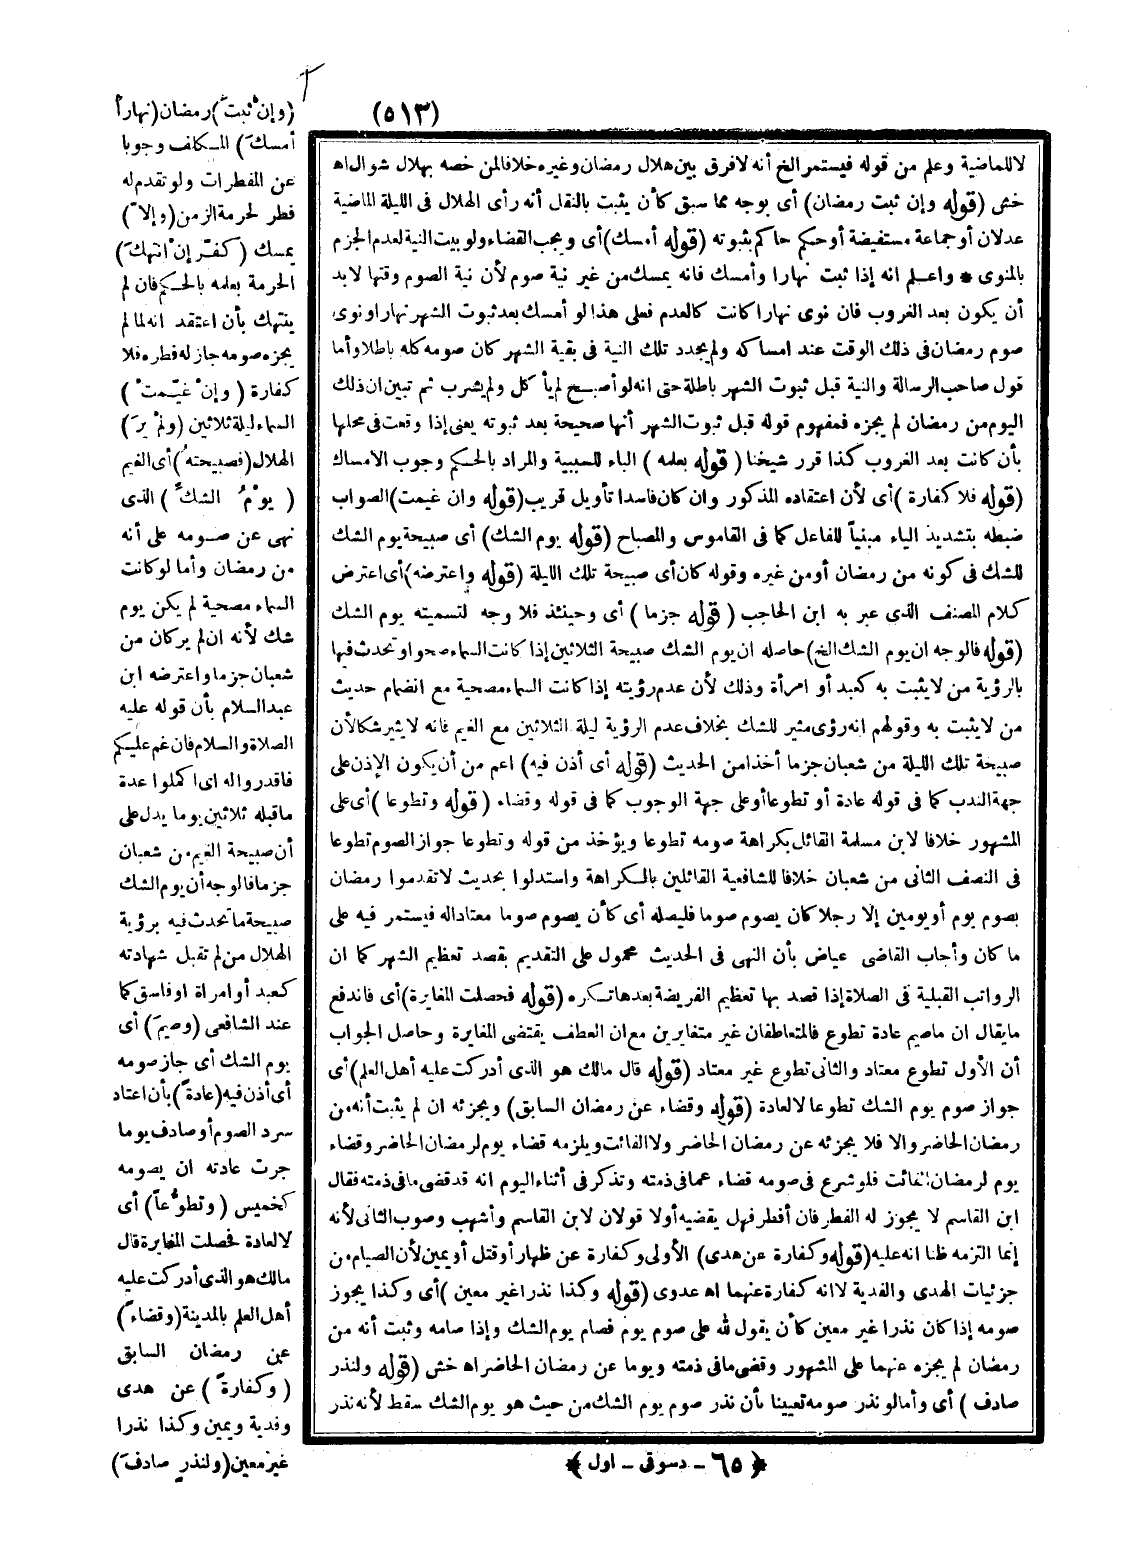 (٥١٣)
لا للماضية وعلم من قوله فيستمر الخ أنه لافرق بين هلال رمضان وغيره خلافا لمن خصه بهلال شوال اه
خش (قوله وإن ثبت رمضان) أى بوجه مما سبق كأن يثبت بالنقل أنه رأى الهلال فى الليلة الماضية
عدلان أو جماعة مستفيضة أو حكم حاكم بثبوته (قوله أمسك) أى ويجب القضاء ولو بيت النية لعدم الجزم
بالمنوى * واعلم انه إذا ثبت نهارا وأمسك فانه يمسك من غير نية صوم لأن نية الصوم وقتها لابد
أن يكون بعد الغروب فان نوى نهارا كانت كالعدم فعلى هذا لو أمسك بعد ثبوت الشهر نهارا ونوى
صوم رمضان فى ذلك الوقت عند امساكه ولم يجدد تلك النية فى بقية الشهر كان صومه كله باطلا وأما
قول صاحب الرسالة والنية قبل ثبوت الشهر باطلة حتى انه لو أصبح لم يأكل ولم يشرب ثم تبين ان ذلك
اليوم من رمضان لم يجزه فمفهوم قوله قبل ثبوت الشهر أنها صحيحة بعد ثبوته يعنى إذا وقعت فى محلها
بأن كانت بعد الغروب كذا قرر شيخنا (قوله بعلمه) الباء للسببية والمراد بالحكم وجوب الامساك
(قوله فلا كفارة) أى لأن اعتقاده المذكور وان كان فاسدا تأويل قريب (قوله وان غيمت) الصواب
ضبطه بتشديد الياء مبنياً للفاعل كما فى القاموس والمصباح (قوله يوم الشك) أى صبيحة يوم الشك
للشك فى كونه من رمضان أو من غيره وقوله كان أى صبيحة تلك الليلة (قوله واعترضه) أى اعترض
كلام المصنف الذى عبر به ابن الحاجب (قوله جزما) أى وحينئذ فلا وجه لتسميته يوم الشك
(قوله فالوجه ان يوم الشك الخ) حاصله ان يوم الشك صبيحة الثلاثين إذا كانت السماء صحوا وتحدث فيها
بالرؤية من لا يثبت به كعبد أو امرأة وذلك لأن عدم رؤيته إذا كانت السماء مصحية مع انضمام حديث
من لا يثبت به وقولهم انه رؤى مثير للشك بخلاف عدم الرؤية ليلة الثلاثين مع الغيم فانه لا يثير شكا لأن
صبيحة تلك الليلة من شعبان جزما أخذا من الحديث (قوله أى أذن فيه) اعم من أن يكون الإذن على
جهة الندب كما فى قوله عادة أو تطوعا أو على جهة الوجوب كما فى قوله وقضاء (قوله وتطوعا) أى على
المشهور خلافا لابن مسلمة القائل بكراهة صومه تطوعا ويؤخذ من قوله وتطوعا جواز الصوم تطوعا
فى النصف الثانى من شعبان خلافا للشافعية القائلين بالكراهة واستدلوا بحديث لا تقدموا رمضان
بصوم يوم أو يومين إلا رجلا كان يصوم صوما فليصله أى كأن يصوم صوما معتادا له فيستمر فيه على
ما كان وأجاب القاضى عياض بأن النهى فى الحديث محمول على التقديم بقصد تعظيم الشهر كما ان
الرواتب القبلية فى الصلاة إذا قصد بها تعظيم الفريضة بعدها تكره (قوله فحصلت المغايرة) أى فاندفع
مايقال ان ماصيم عادة تطوع فالمتعاطفان غير متغايرين مع ان العطف يقتضى المغايرة وحاصل الجواب
أن الأول تطوع معتاد والثانى تطوع غير معتاد (قوله قال مالك هو الذى أدركت عليه أهل العلم) أى
جواز صوم يوم الشك تطوعا لا لعادة (قوله وقضاء عن رمضان السابق) ويجزئه ان لم يثبت أنه من
رمضان الحاضر والا فلا يجزئه عن رمضان الحاضر ولا الفائت ويلزمه قضاء يوم لرمضان الحاضر وقضاء
يوم لرمضان الفائت فلو شرع فى صومه قضاء عما فى ذمته وتذكر فى أثناء اليوم انه قد قضى ما فى ذمته فقال
ابن القاسم لا يجوز له الفطر فان أفطر فهل يقضيه أولا قولان لابن القاسم وأشهب وصوب الثانى لأنه
إنما التزمه ظنا انه عليه (قوله وكفارة عن هدى) الأولى وكفارة عن ظهار أو قتل أو يمين لأن الصيام من
جزئيات الهدى والفدية لا انه كفارة عنهما اه عدوى (قوله وكذا نذرا غير معين) أى وكذا يجوز
صومه إذا كان نذرا غير معين كأن يقول لله على صوم يوم فصام يوم الشك وإذا صامه وثبت أنه من
رمضان لم يجزه عنهما على المشهور وقضى ما فى ذمته ويوما عن رمضان الحاضر اه خش (قوله ولنذر
صادف) أى وأما لو نذر صومه تعيينا بأن نذر صوم يوم الشك من حيث هو يوم الشك سقط لأنه نذر
(وإن ثبت) رمضان (نهاراً
أمسك) المكلف وجوبا
عن المفطرات ولو تقدم له
فطر لحرمة الزمن (وإلا)
يمسك (كفّر إن انتهك)
الحرمة بعلمه بالحكم فان لم
ينتهك بأن اعتقد انه لما لم
يجزه صومه جاز له فطره فلا
كفارة (وإن غيّمت)
السماء ليلة ثلاثين (ولم ير)
الهلال (فصبيحته) أى الغيم
(يومُ الشك) الذى
نهى عن صومه على أنه
من رمضان وأما لو كانت
السماء مصحية لم يكن يوم
شك لأنه ان لم ير كان من
شعبان جزما واعترضه ابن
عبد السلام بأن قوله عليه
الصلاة والسلام فان غم عليكم
فاقدروا له اى اكملوا عدة
ما قبله ثلاثين يوما يدل على
أن صبيحة الغيم من شعبان
جزما فالوجه أن يوم الشك
صبيحة ما تحدث فيه برؤية
الهلال من لم تقبل شهادته
كعبد أو امراة او فاسق كما
عند الشافعى (وصيمَ) أى
يوم الشك أى جاز صومه
أى أذن فيه (عادةً) بأن اعتاد
سرد الصوم أو صادف يوما
جرت عادته ان يصومه
كخميس (وتطوُّعاً) أى
لا لعادة فحصلت المغايرة قال
مالك هو الذى أدركت عليه
أهل العلم بالمدينة (وقضاءً)
عن رمضان السابق
(وكفارةً) عن هدى
وفدية ويمين وكذا نذرا
غير معين (ولنذرٍ صادفَ)
﴿ ٦٥ - دسوقى - اول ﴾